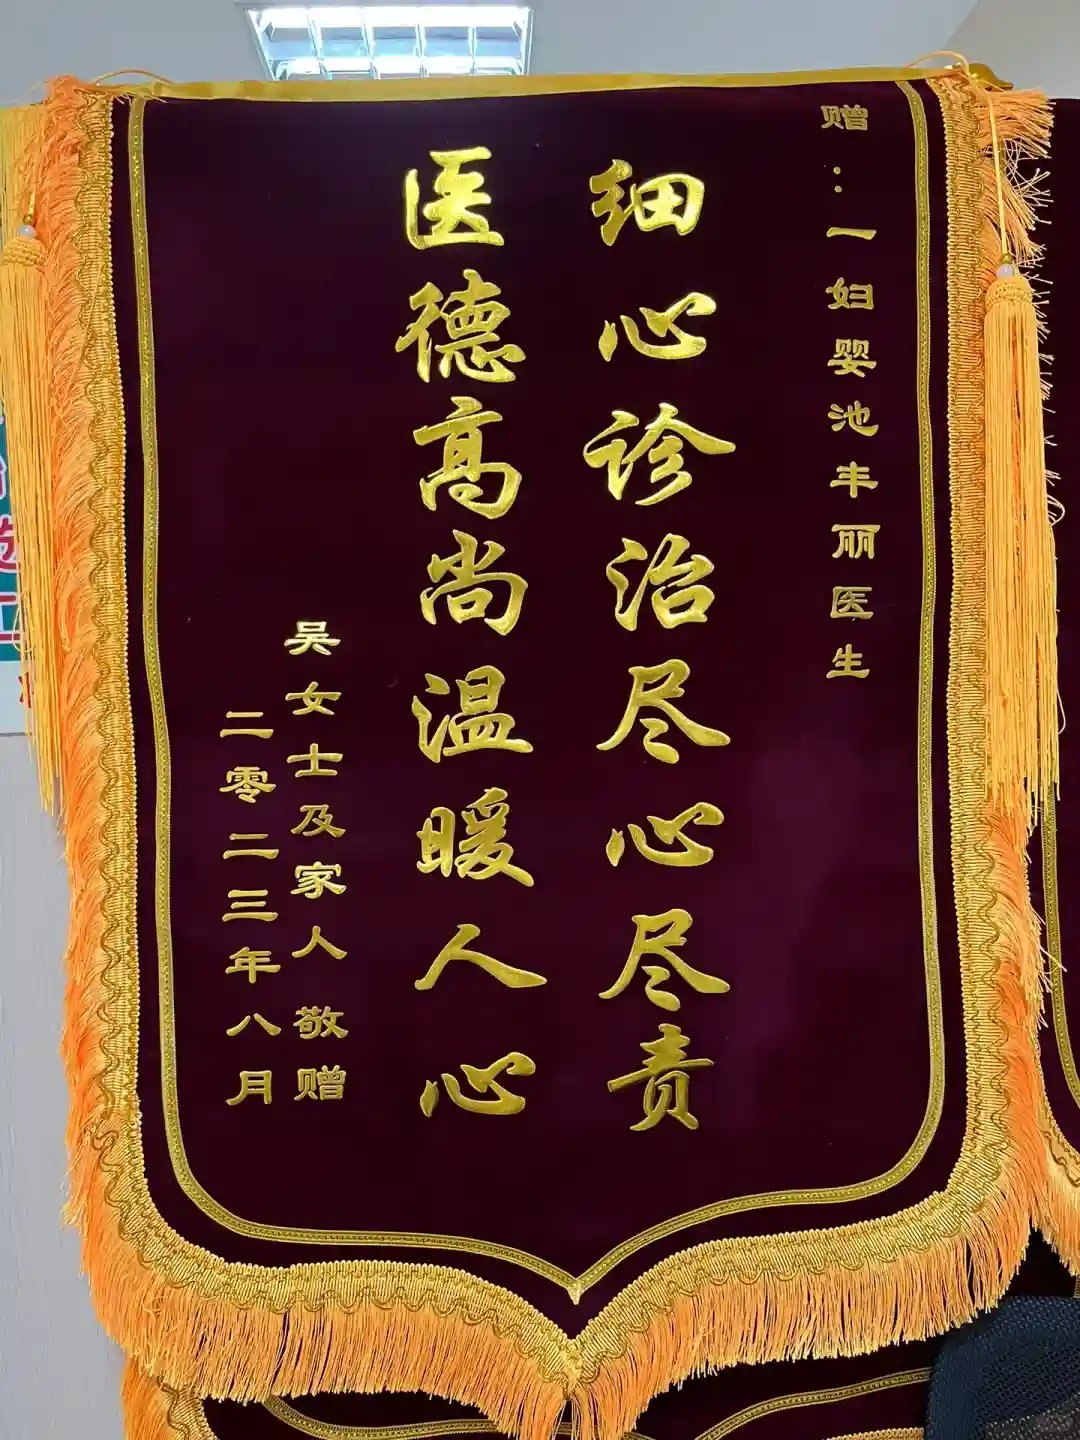 赠：一妇婴池丰丽医生
细心诊治尽心尽责
医德高尚温暖人心
吴女士及家人 敬赠
二零二三年八月